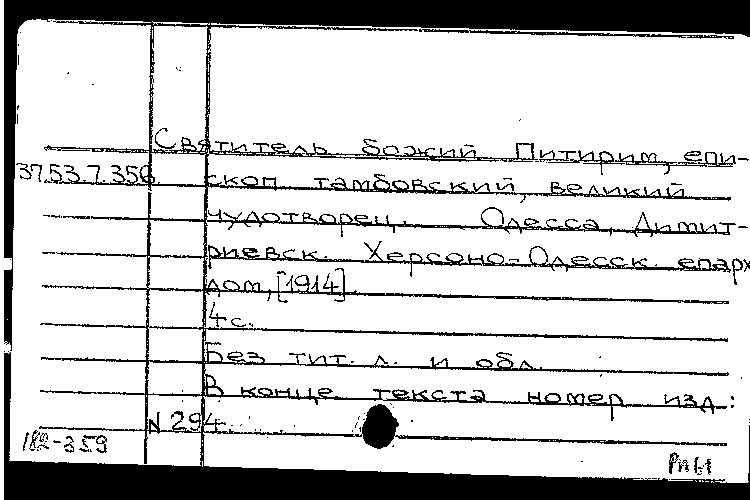 Святитель божий Питирим, епи-
37.53.7.356 скоп тамбовский, великий
чудотворец. Одесса, Димит-
риевск. Херсоно-Одесск. епарх
дом, [1914].
4 с.
Без тит. л. и обл.
В конце текста номер изд:
N 294.
182-359